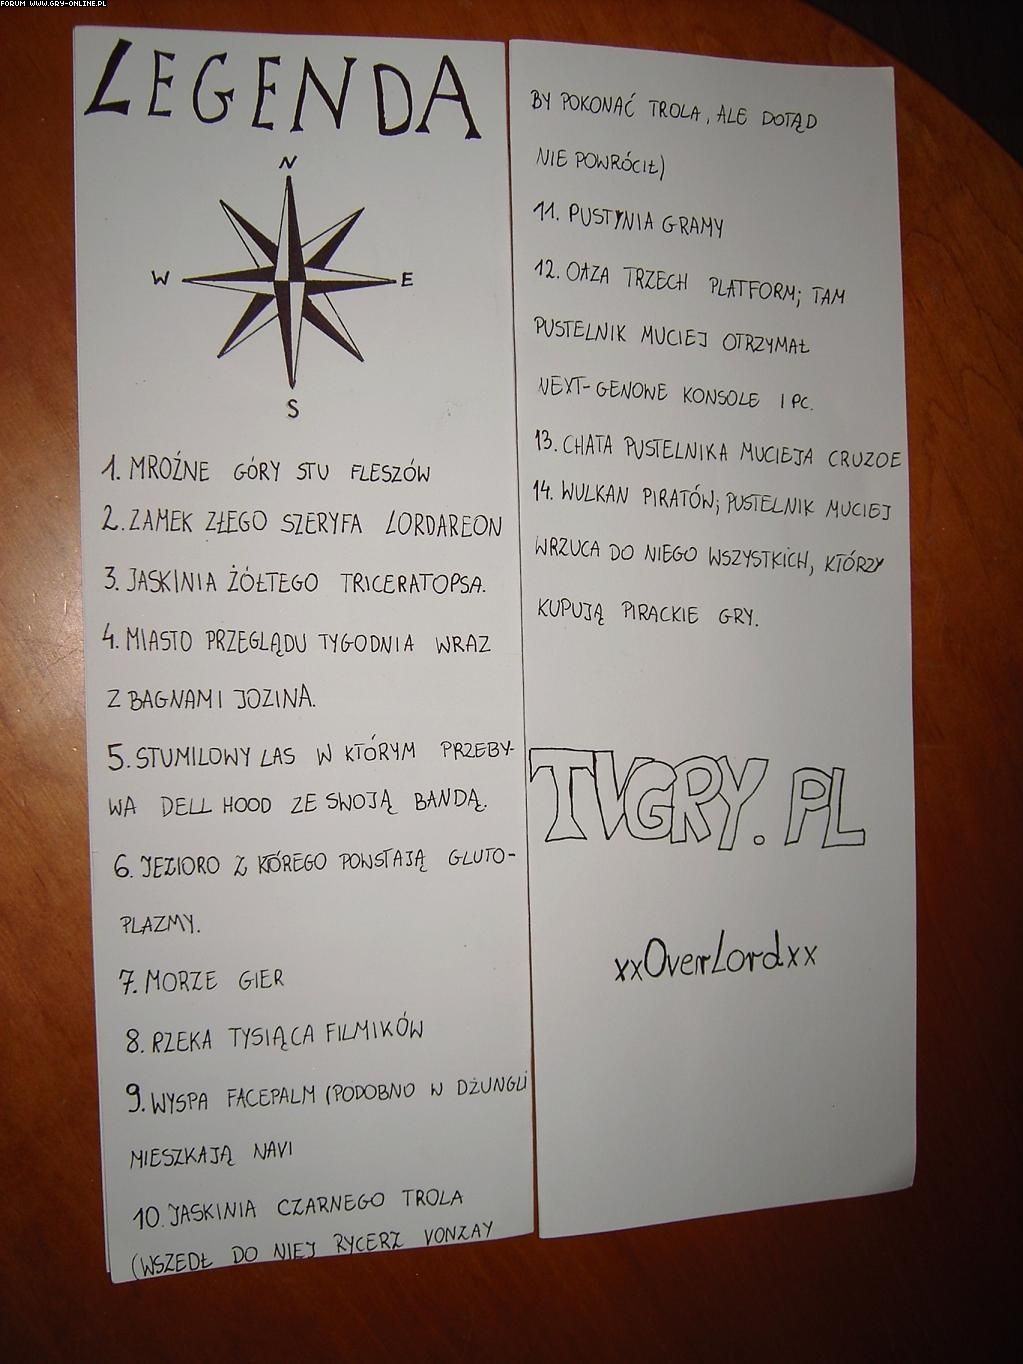 FORUM WWW.GRY-ONLINE.PL
LEGENDA
N
W
E
S
1. MROŹNE GÓRY STU FLESZÓW
2. ZAMEK ZŁEGO SZERYFA LORDAREON
3. JASKINIA ŻÓŁTEGO TRICERATOPSA.
4. MIASTO PRZEGLĄDU TYGODNIA WRAZ
Z BAGNAMI JOZINA.
5. STUMILOWY LAS W KTÓRYM PRZEBY-
WA DELL HOOD ZE SWOJĄ BANDĄ.
6. JEZIORO Z KTÓREGO POWSTAJĄ GLUTO-
PLAZMY.
7. MORZE GIER
8. RZEKA TYSIĄCA FILMIKÓW
9. WYSPA FACEPALM (PODOBNO W DŻUNGLI
MIESZKAJĄ NAVI
10. JASKINIA CZARNEGO TROLA
(WSZEDŁ DO NIEJ RYCERZ VONZAY
BY POKONAĆ TROLA, ALE DOTĄD
NIE POWRÓCIŁ)
11. PUSTYNIA GRAMY
12. OAZA TRZECH PLATFORM; TAM
PUSTELNIK MUCIEJ OTRZYMAŁ
NEXT-GENOWE KONSOLE I PC.
13. CHATA PUSTELNIKA MUCIEJA CRUZOE
14. WULKAN PIRATÓW; PUSTELNIK MUCIEJ
WRZUCA DO NIEGO WSZYSTKICH, KTÓRZY
KUPUJĄ PIRACKIE GRY.
TVGRY.PL
xxOverLordxx